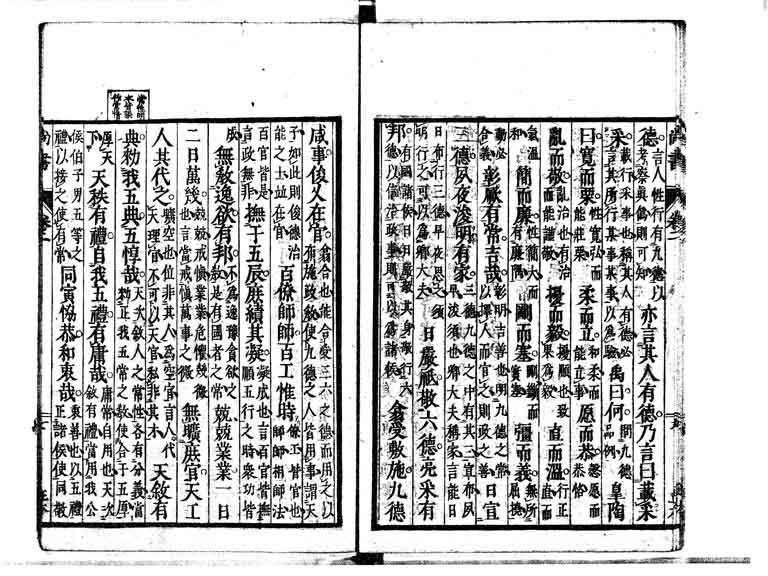 德言人性行有九德以考察真偽則可知亦言其人有德乃言曰載采
采載行采事也稱其人有德必言其所行某事某事以為驗禹曰何問九德品例皋陶
曰寬而栗性寬弘而能莊栗柔而立和柔而能立事愿而恭愨愿而恭恪
亂而敬亂治也有治而能謹敬擾而毅擾順也致果爲毅直而溫行正直而
氣溫和簡而廉性簡大而有廉隅剛而塞剛斷而實塞彊而義無所屈撓
動必合義彰厥有常吉哉彰明吉善也明九德之常以擇人而官之則政之善日宣
三德夙夜浚明有家三德九德之中有其三宣布夙早浚須也卿大夫稱家言能日
日布行三德早夜思之須明行之可以爲卿大夫日嚴祗敬六德亮采有
邦有國諸侯日日嚴敬其身敬行六德以信治政事則可以爲諸侯翕受敷施九德
咸事俊乂在官翕合也能合受三六之德而用之以布施政教使九德之人皆用事謂天
子如此則俊德治能之士並在官百僚師師百工惟時僚工皆官也師師相師法
百官皆是言政無非撫于五辰庶績其凝凝成也言百官皆撫順五行之時衆功皆
成無教逸欲有邦不爲逸豫貪欲之教是有國者之常兢兢業業一日
二日萬幾兢兢戒慎業業危懼幾微也言當戒慎萬事之微無曠庶官天工
人其代之曠空也位非其人爲空官言人代天理官不可以天官私非其才天敘有
典勑我五典五惇哉天次敘人之常性各有分義當勑正我五常之敘使合于五厚
厚天下天秩有禮自我五禮有庸哉庸常自用也天次敘有禮當用我公
侯伯子男五等之禮以接之使有常同寅協恭和衷哉衷善也以五禮正諸侯使同敬
尚書
卷二